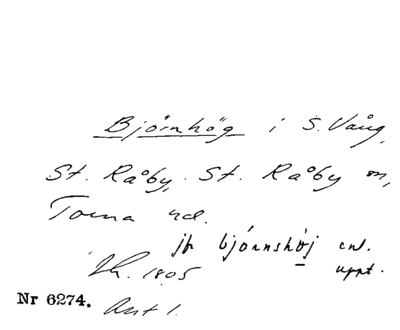 Björnhög i S. Vång,
St. Råby, St. Råby sn,
Torna hd.
jfr bjönnshöj enl.
Lh. 1805 uppt.
Nr 6274. Akt 1.